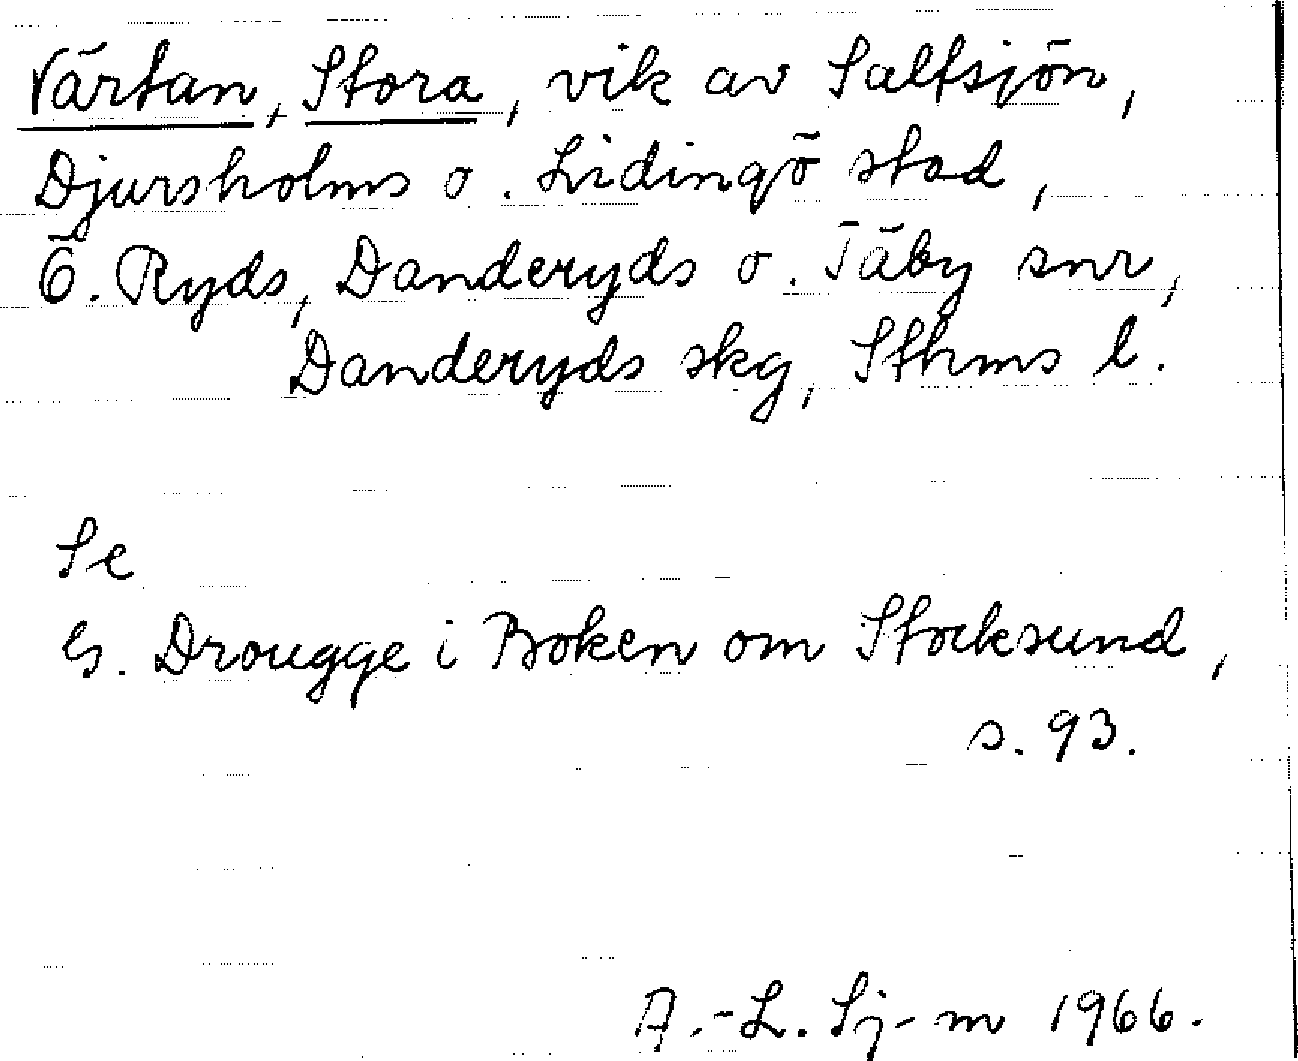 Värtan, Stora, vik av Saltsjön,
Djursholms o. Lidingö stad,
Ö. Ryds, Danderyds o. Täby snr,
Danderyds skg, Sthms l.
Se
G. Drougge i Boken om Stocksund,
s. 93.
A.-L. Sj-m 1966.